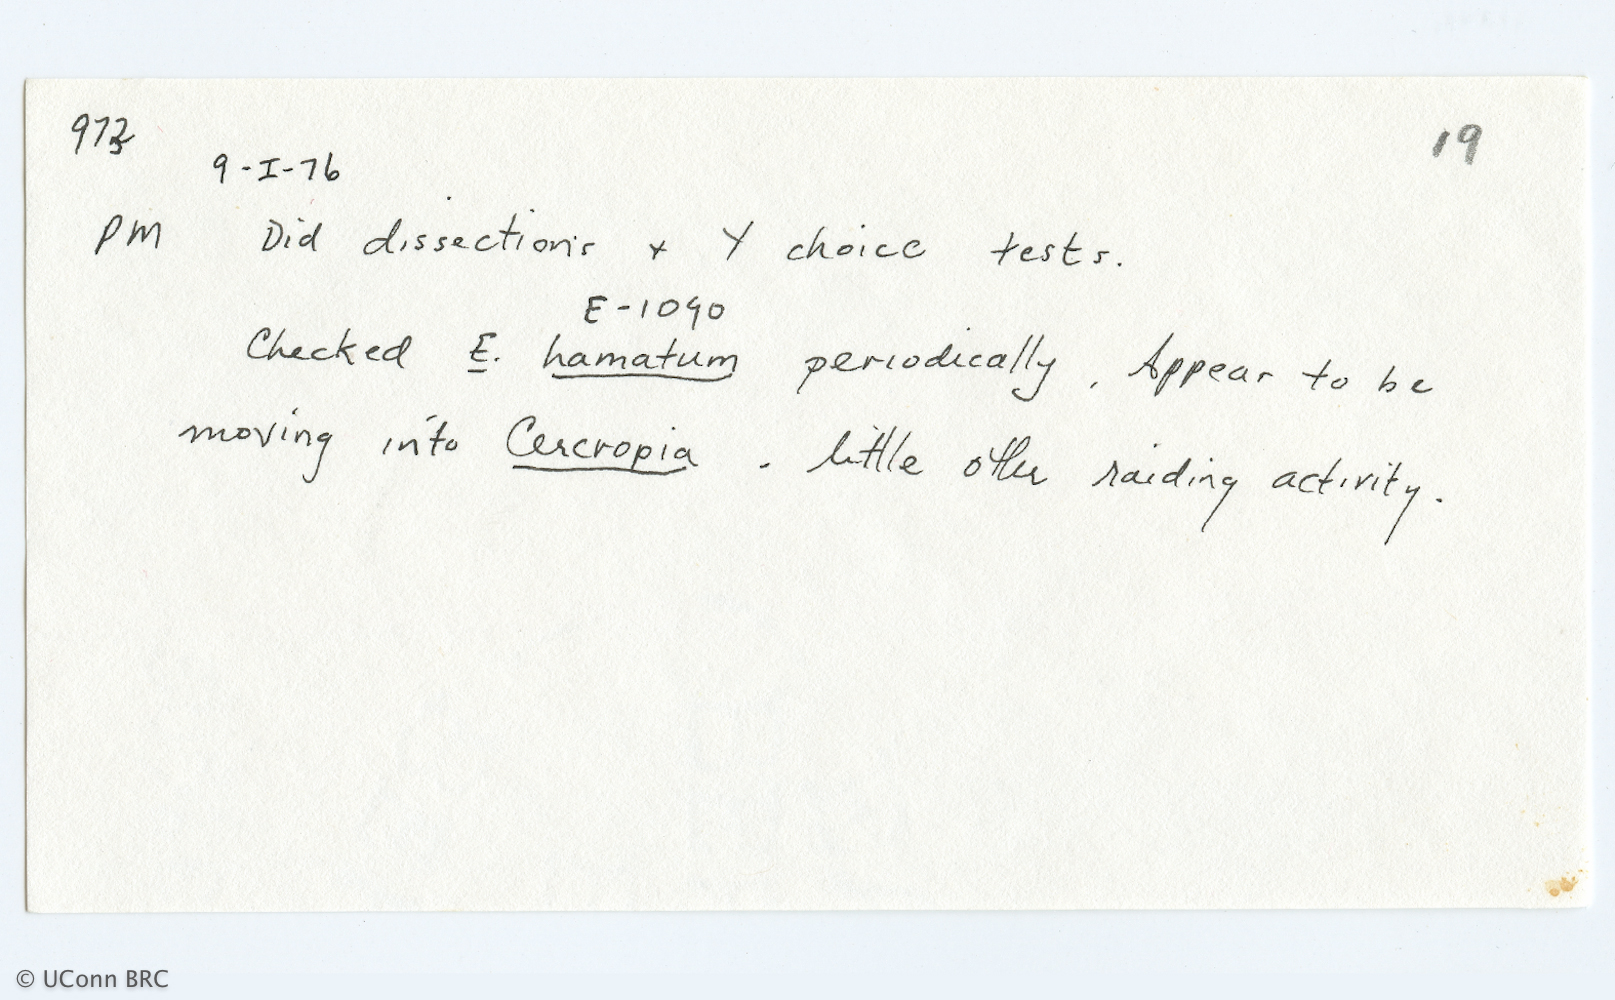 973
19
9-I-76
PM Did dissections + Y choice tests.
E-1090
Checked E. hamatum periodically. Appear to be
moving into Cercropia. little other raiding activity.
© UConn BRC